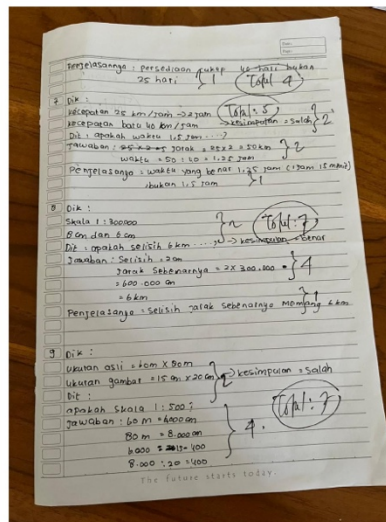 Penjelasannya : persediaan cukup 40 hari bukan
35 hari } 1
Total 4
7 Dik :
kecepatan 25 km/jam → 2 jam
kecepatan baru 40 km/jam → kesimpulan = salah } 2
Total : 5
Dit : apakah waktu 1.5 jam ....?
Jawaban : jarak = 25 x 2 = 50 km } 2
waktu = 50 : 40 = 1.25 jam
Penjelasanya : waktu yang benar 1.25 jam (1 jam 15 menit)
bukan 1.5 jam } 1
8 Dik :
Skala 1 : 300.000
8 cm dan 6 cm } 2
Total : 7
Dit : apakah selisih 6 km ....., → kesimpulan = benar
Jawaban : Selisih = 2 cm
jarak Sebenarnya = 2 x 300.000 } 4
= 600.000 cm
= 6 km
Penjelasanya = selisih jarak sebenarnya memang 6 km } 1
9 Dik :
ukuran asli = 60 m x 80 m
ukuran gambar = 15 cm x 20 cm } 2 → kesimpulan = salah
Dit :
apakah skala 1 : 500 ;
Total : 7
Jawaban : 60 m = 6000 cm
80 m = 8.000 cm } 4.
6000 : 15 = 400
8.000 : 20 = 400
The future starts today.